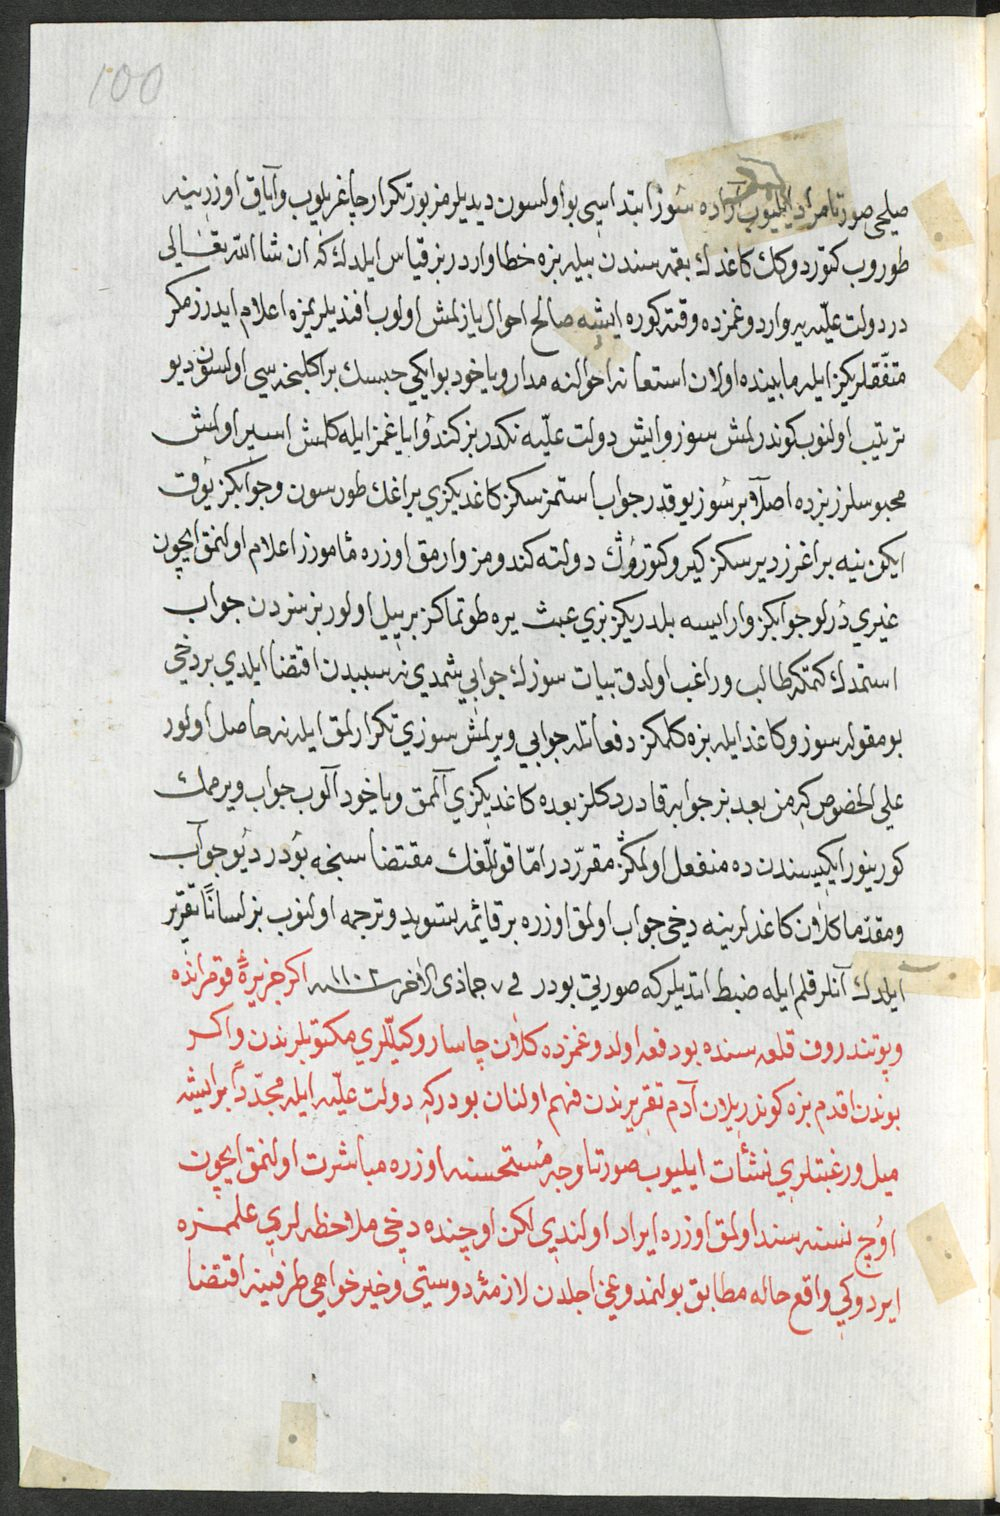 100
صلحی صورتا مراد ایلیوب آراده سوز ابتداسی بو اولسون دیدیلر مزبور تکرار چاغریلوب و آیاق اوزرینه
طوروب کتوردوکك کاغدك بقیه سندن بیله بزه خطا واردر بز قیاس ایلدك که ان شا الله تعالی
در دولت علیّه یه واردوغمزده وقته کوره ایشه صالح احوال یازلمش اولوب افندیلریمزه اعلام ایدرز مکر
متّفقلریکز ایله مابینده اولان استعانه احوالنه مدار و یاخود بو ایکی حبسك براکلنجه سی اولسون دیو
ترتیب اولنوب کوندرلمش سوز و ایش دولت علیّه نکدر بز کندو ایاغمز ایله کلمش اسیر اولمش
محبوسلرز بزده اصلا بر سوز یوقدر جواب استمزسکز کاغدیکزی براغك طورسون و جوابکز یوق
ایکن نیه براغرز دیرسکز کیرو کتورك دولته کندومز وارمق اوزره مأمورز اعلام اولنمق ایچون
غیری درلو جوابکز وار ایسه بلدریکز بزی عبث یره طوتماکز بر ییل اولور بز سزدن جواب
استمدك کتمکه طالب و راغب اولدق بیات سوزك جوابی شمدی نه سببدن اقتضا ایلدی بر دخی
بو مقوله سوز و کاغد ایله بزه کلمکز دفعاتله جوابی ویرلمش سوزی تکرارلمق ایله نه حاصل اولور
علی الخصوص که من بعد بز جوابه قادر دکلز بعده کاغدیکزی آلمق و یاخود آلوب جواب ویرمك
کورینور ایکیسندن ده منفعل اولمکز مقرّردر امّا قوللغك مقتضاسنجه بودر دیو جواب
و مقدّما کلان کاغدلرینه دخی جواب اولمق اوزره بر قایمه تسوید و ترجمه اولنوب بز لسانًا تقریر
ایلدك آنلر قلم ایله ضبط ایتدیلر که صورتی بودر فی ۷ جماذی الآخر سنه ۱۱۰۲ اکر جزیرۀ قومرانده
و پوتندروف قلعه سنده بو دفعه اولدوغمزده کلان چاسار وکیللری مکتوبلرندن و اکر
بوندن اقدم بزه کوندریلان آدم تقریرندن فهم اولنان بودر که دولت علیّه ایله مجدّدًا بر ایشه
میل و رغبتلری نشئات ایلیوب صورتا وجه مستحسنه اوزره مباشرت اولنمق ایچون
اوچ نسنه سند اولمق اوزره ایراد اولندی لکن اوچنده دخی ملاحظه لری علمنزه
ایردوکی واقع حاله مطابق بولنمدوغی اجلدن لازمۀ دوستی و خیرخواهی طرفینه اقتضا